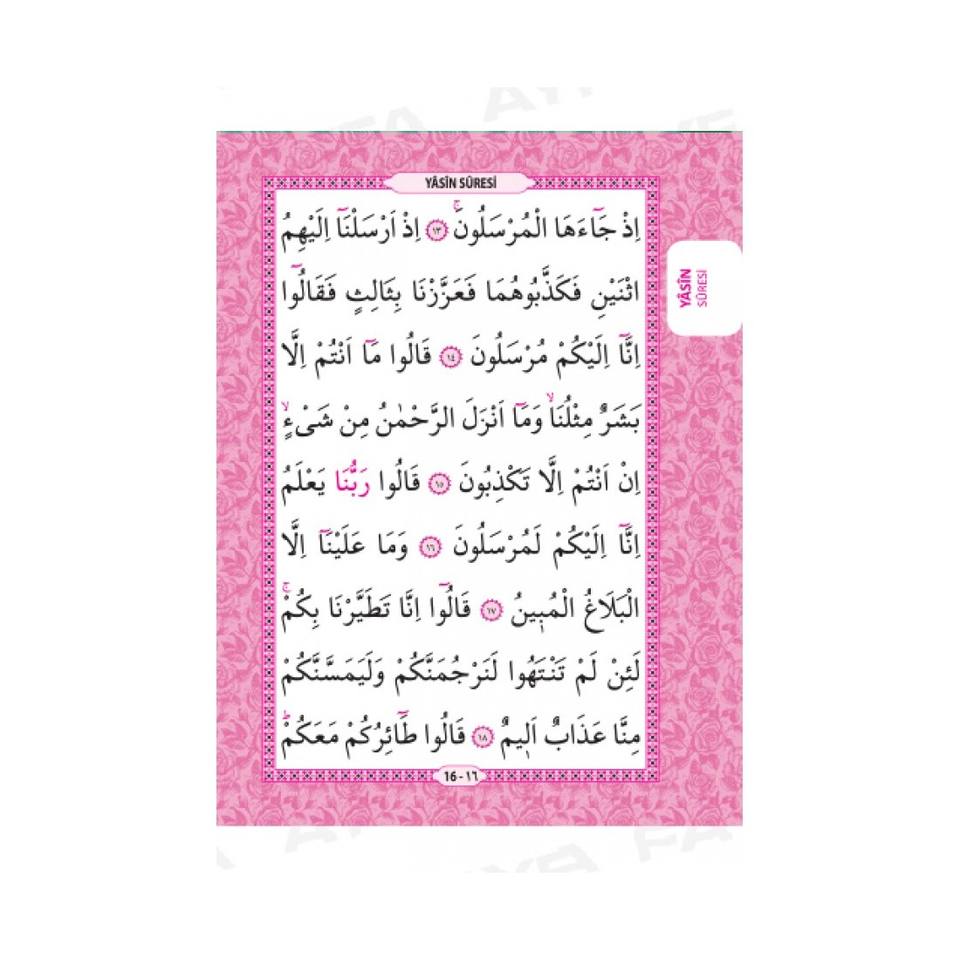 YÂSÎN SÛRESİ
اِذْ جَٓاءَهَا الْمُرْسَلُونَۚ ﴿١٣﴾ اِذْ اَرْسَلْنَٓا اِلَيْهِمُ
اثْنَيْنِ فَكَذَّبُوهُمَا فَعَزَّزْنَا بِثَالِثٍ فَقَالُٓوا
اِنَّٓا اِلَيْكُمْ مُرْسَلُونَ ﴿١٤﴾ قَالُوا مَٓا اَنْتُمْ اِلَّا
بَشَرٌ مِثْلُنَاۙ وَمَٓا اَنْزَلَ الرَّحْمٰنُ مِنْ شَىْءٍۙ
اِنْ اَنْتُمْ اِلَّا تَكْذِبُونَ ﴿١٥﴾ قَالُوا رَبُّنَا يَعْلَمُ
اِنَّٓا اِلَيْكُمْ لَمُرْسَلُونَ ﴿١٦﴾ وَمَا عَلَيْنَٓا اِلَّا
الْبَلَاغُ الْمُبٖينُ ﴿١٧﴾ قَالُٓوا اِنَّا تَطَيَّرْنَا بِكُمْۚ
لَئِنْ لَمْ تَنْتَهُوا لَنَرْجُمَنَّكُمْ وَلَيَمَسَّنَّكُمْ
مِنَّا عَذَابٌ اَلٖيمٌ ﴿١٨﴾ قَالُوا طَٓائِرُكُمْ مَعَكُمْؕ
16 - ١٦
YÂSÎN
SÛRESİ